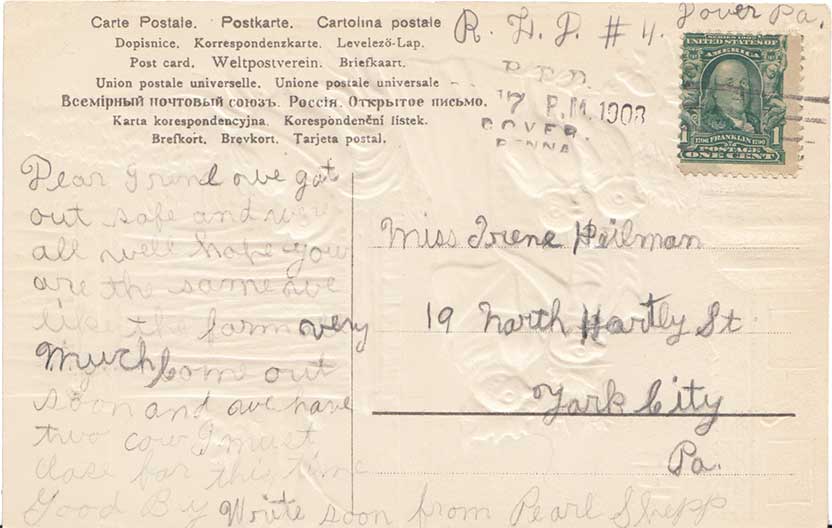 Carte Postale. Postkarte. Cartolina postale
Dopisnice. Korrespondenzkarte. Levelező-Lap.
Post card. Weltpostverein. Briefkaart.
Union postale universelle. Unione postale universale
Всемірный почтовый союзъ. Россія. Открытое письмо.
Karta korespondencyjna. Korespondenční listek.
Brefkort. Brevkort. Tarjeta postal.
R. F. D. # 4. Dover Pa.
7 P.M. 1908
DOVER.
PENNA
UNITED STATES OF
AMERICA
FRANKLIN
1 POSTAGE 1
ONE CENT
Dear Friend we got
out safe and were
all well hope you
are the same we
like the farm very
Much Come out
soon and we have
two cow I must
close for this time
Good By Write soon from Pearl Shepp
Miss Irene Heilman
19 North Hartly St
York City
Pa.